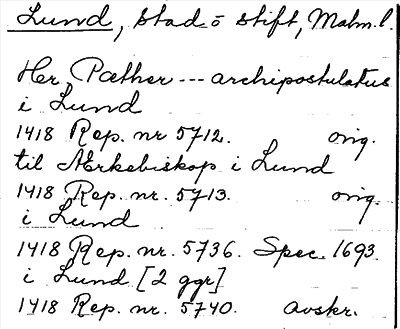 Lund, stad o stift, Malm. l.
Her Pæther --- archipostulatus
i Lund
1418 Rep. nr 5712. orig.
til Ærkebiskop i Lund
1418 Rep. nr. 5713. orig.
i Lund
1418 Rep. nr. 5736. Spec. 1693.
i Lund [2 ggr]
1418 Rep. nr. 5740. avskr.